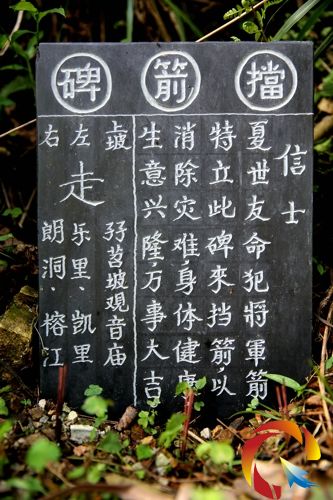 擋箭碑
信士
夏世友命犯將軍箭
特立此碑來挡箭,以
消除灾难,身体健康
生意兴隆万事大吉
上坡 坡观音庙
左 走 乐里、凯里
右 朗洞、榕江